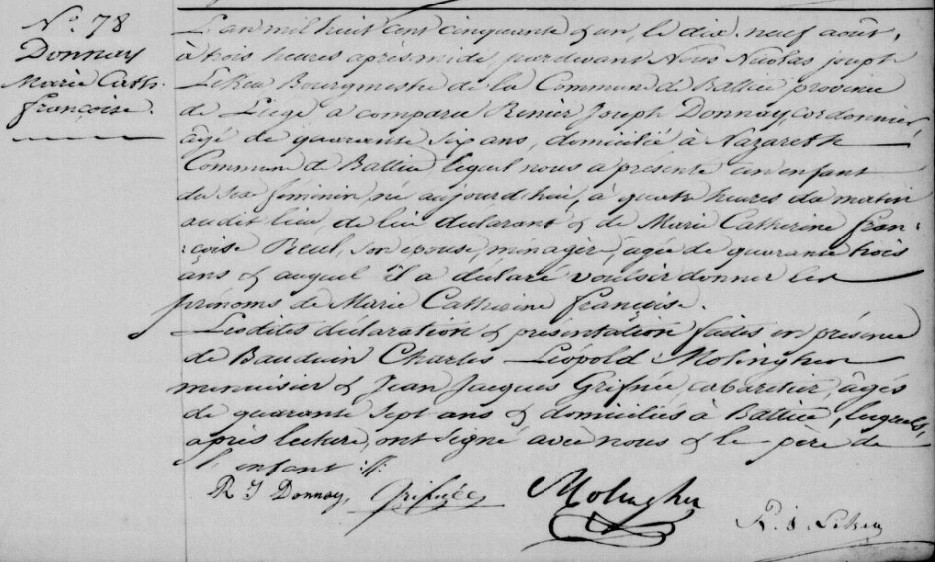 N.º 78
Donnay
Marie Cath.
françoise.
L'an mil huit cent cinquante & un, le dix-neuf août,
à trois heures après midi, pardevant Nous Nicolas joseph
Lekeu Bourgmestre de la Commune de Battice province
de Liége a comparu Renier Joseph Donnay, cordonnier,
âgé de quarante six ans, domicilié à Nazareth
Commune de Battice lequel nous a présenté un enfant
du sex féminin, né aujourd'hui, à quatre heures du matin
audit lieu, de lui déclarant & de Marie Catherine fran-
:çoise Beul, son épouse, ménagère, âgée de quarante trois
ans & auquel il a déclaré vouloir donner les
prénoms de Marie Catherine françoise.
Lesdites déclaration & présentation faites en présence
de Bauduin Charles Léopold Molinghen
menuisier & Jean Jacques Grifnée, cabaretier, âgés
de quarante sept ans & domiciliés à Battice, lesquels,
après lecture, ont signé avec nous & le père de
l'enfant :/:
R J Donnay, Grifnée Molinghen
N. j Lekeu